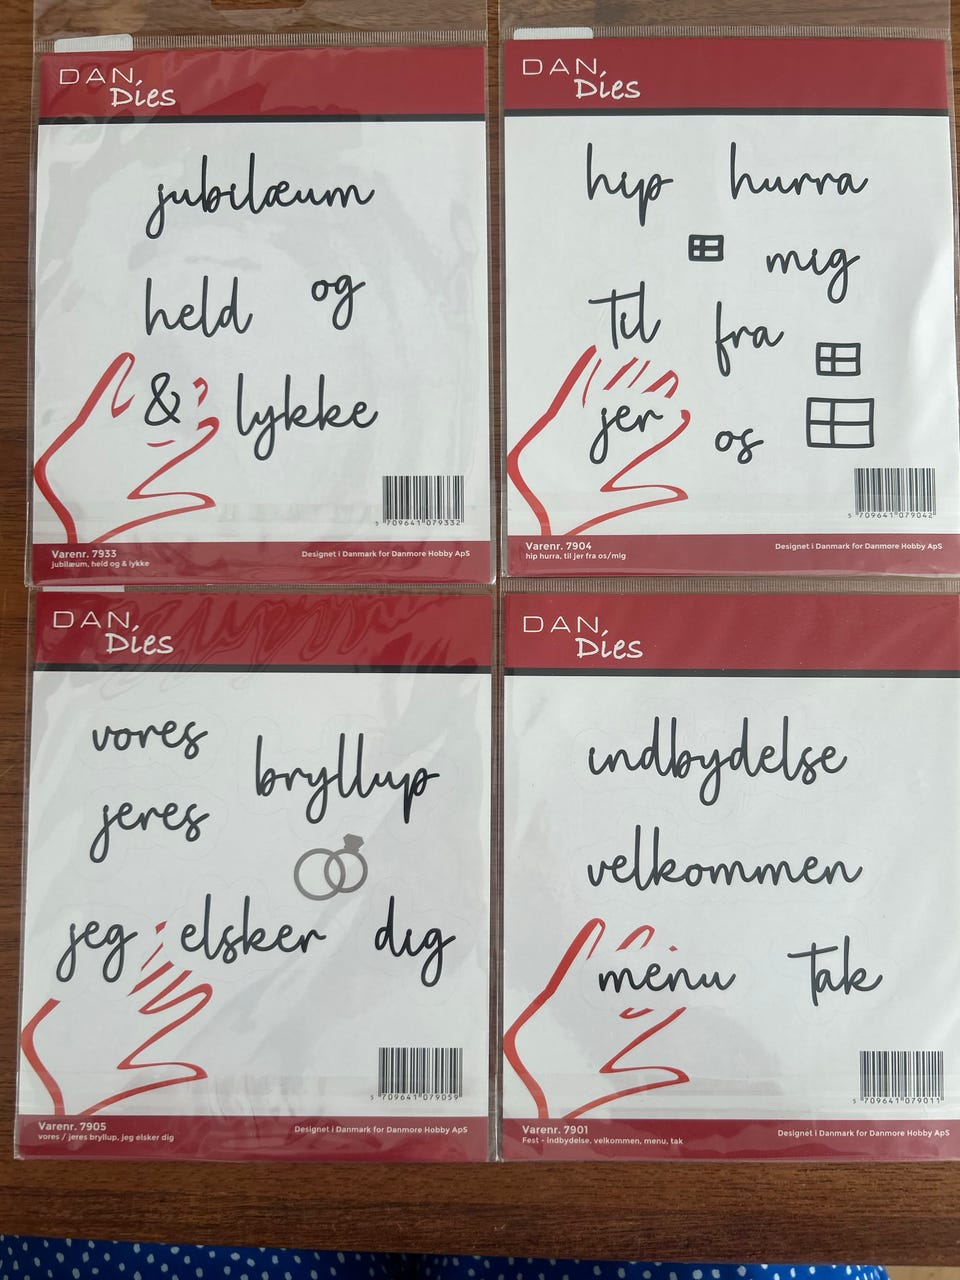 DAN,
Dies
jubilæum
held og
& lykke
5 709641 079332
Varenr. 7933
jubilæum, held og & lykke
Designet i Danmark for Danmore Hobby ApS
DAN,
Dies
hip hurra
mig
til fra
jer os
5 709641 079042
Varenr. 7904
hip hurra, til jer fra os/mig
Designet i Danmark for Danmore Hobby ApS
DAN,
Dies
vores
bryllup
jeres
jeg elsker dig
5 709641 079059
Varenr. 7905
vores / jeres bryllup, jeg elsker dig
Designet i Danmark for Danmore Hobby ApS
DAN,
Dies
indbydelse
velkommen
menu tak
5 709641 079011
Varenr. 7901
Fest - indbydelse, velkommen, menu, tak
Designet i Danmark for Danmore Hobby ApS